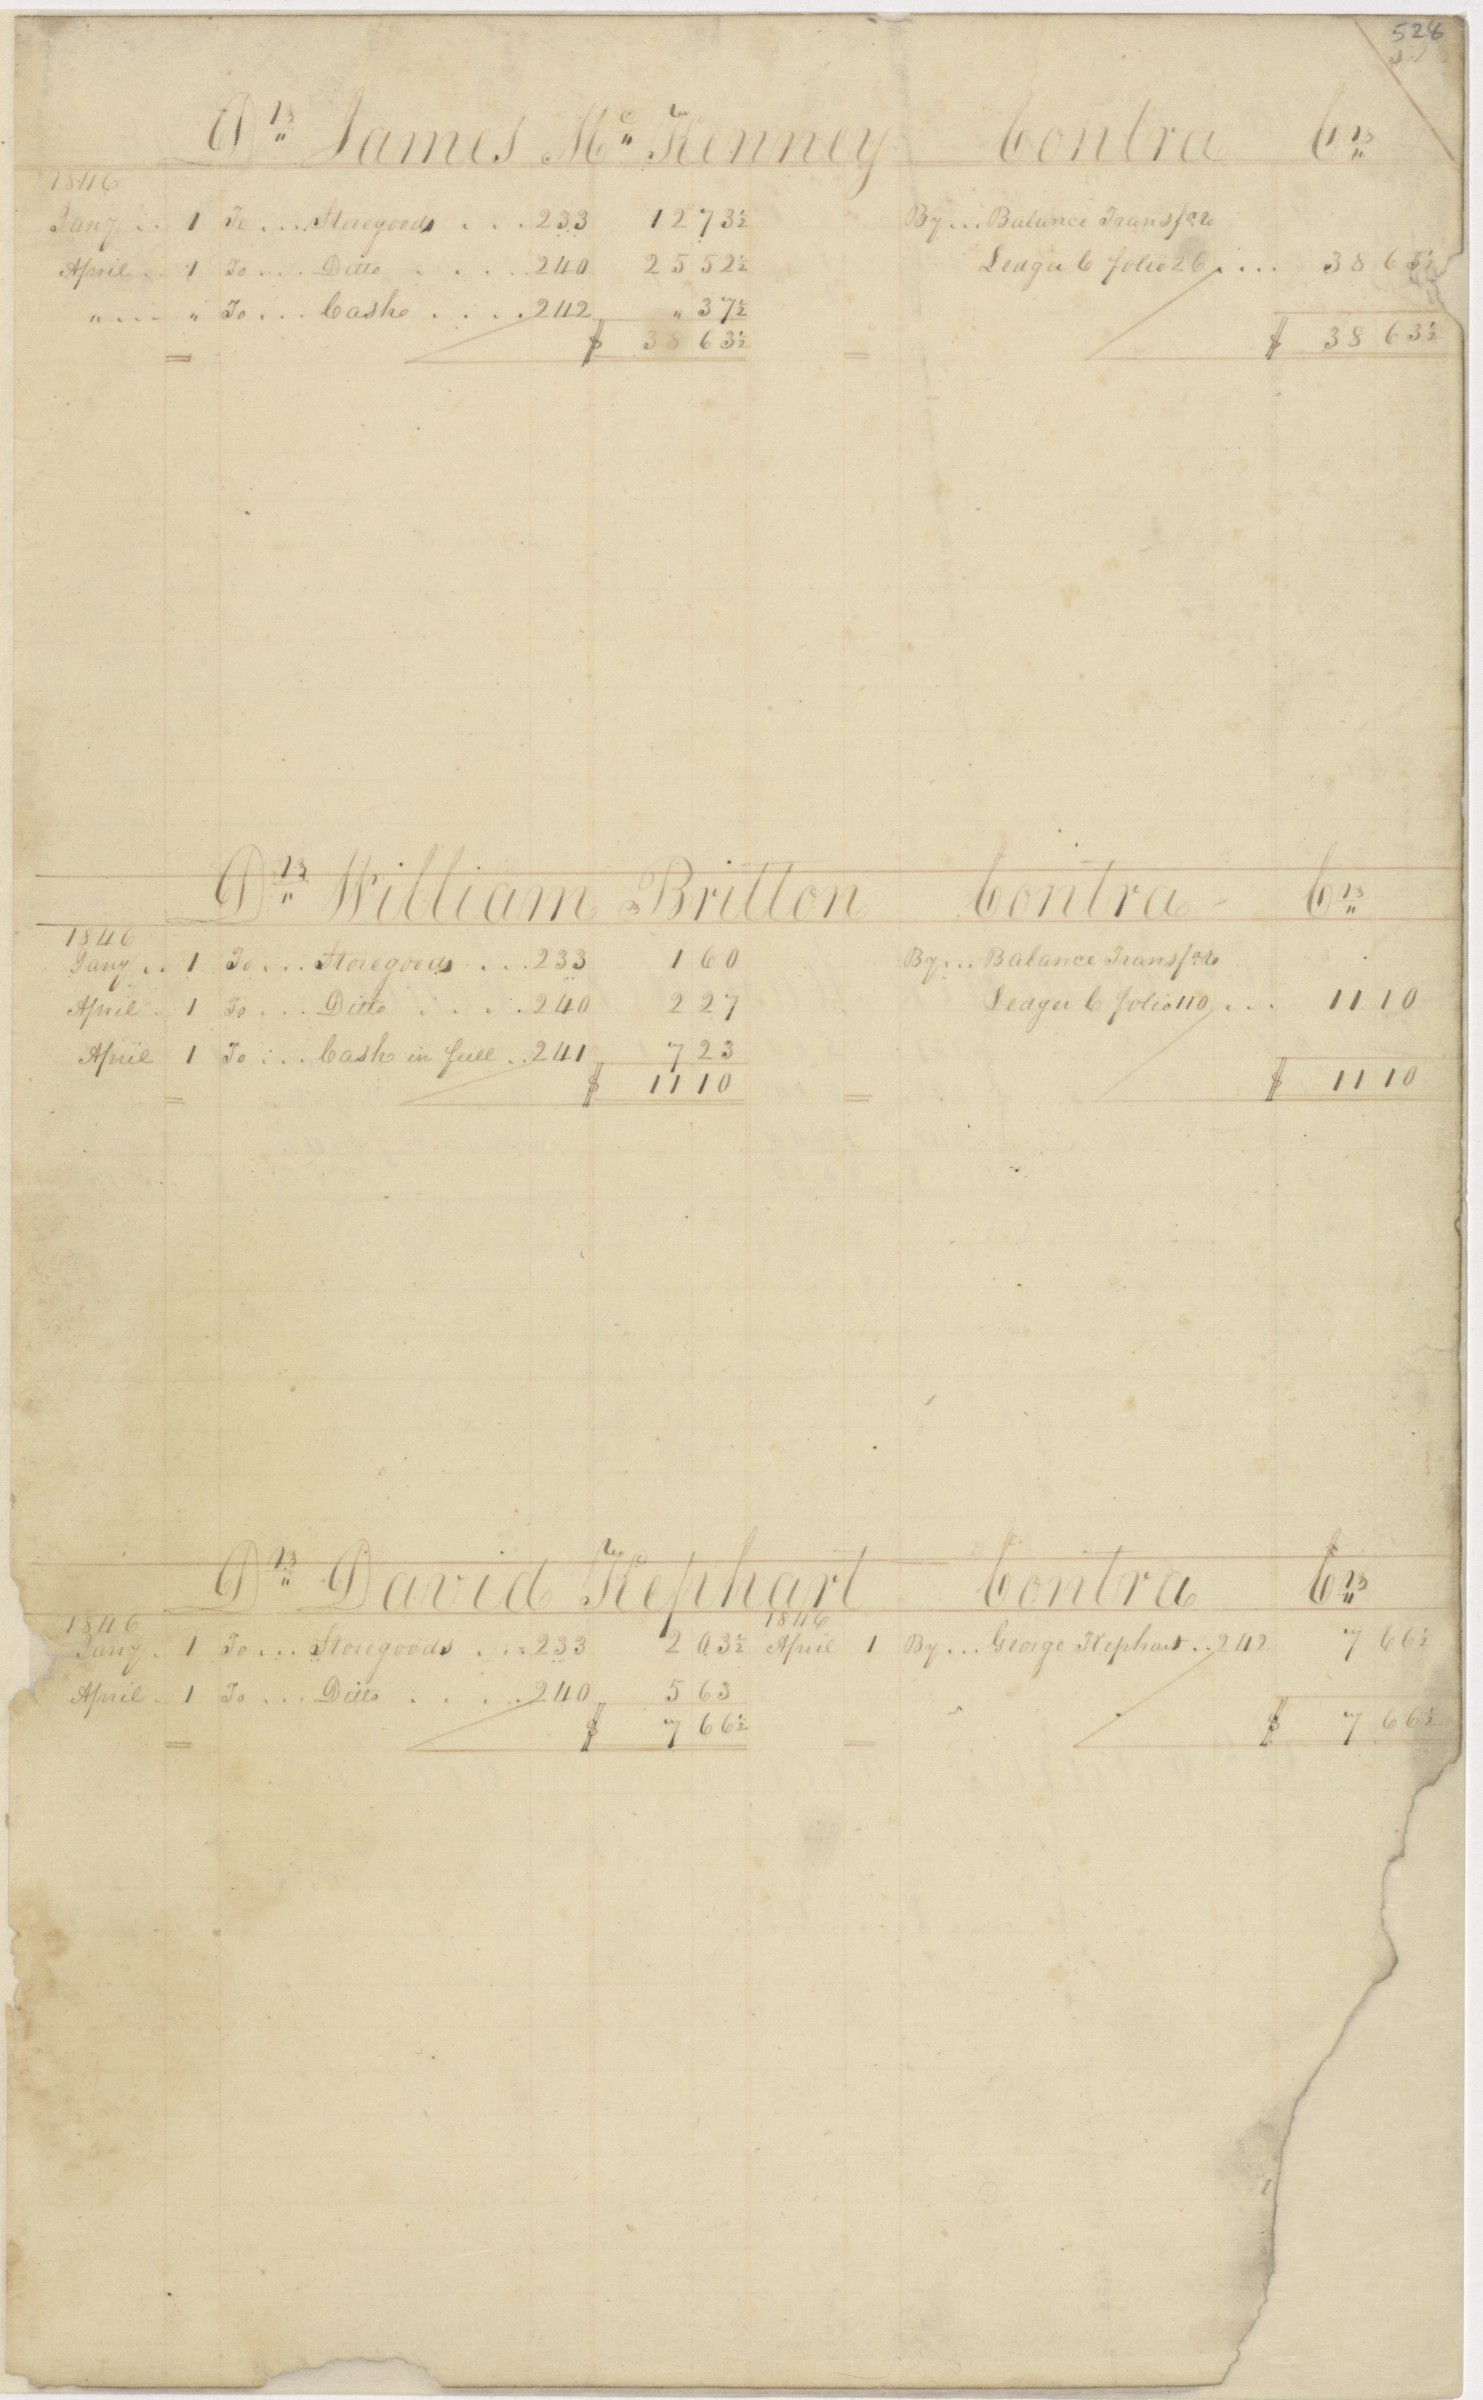 528
Dr James McKenney Contra Cr
1846
Jany .. 1 To .... Storegoods . . . 233 12 73½ By ... Balance Transfrd
April .. 1 To .... Ditto . . . . . 240 25 52½ Ledger C folio 26 .... 38 63½
" .... " To .... Cash . . . . 242 " 37½
$ 38 63½ $ 38 63½
Dr William Britton Contra Cr
1846
Jany .. 1 To .... Storegoods . . . 233 1 60 By ... Balance Transfrd
April . 1 To .... Ditto . . . . 240 2 27 Ledger C folio 110 .... 11 10
April 1 To .... Cash in full .. 241 7 23
$ 11 10 $ 11 10
Dr David Kephart Contra Cr
1846 1846
Jany . 1 To .... Storegoods . . . 233 2 03½ April 1 By ... George Kephart .. 242 7 66½
April . 1 To .... Ditto . . . . . 240 5 63
$ 7 66½ $ 7 66½